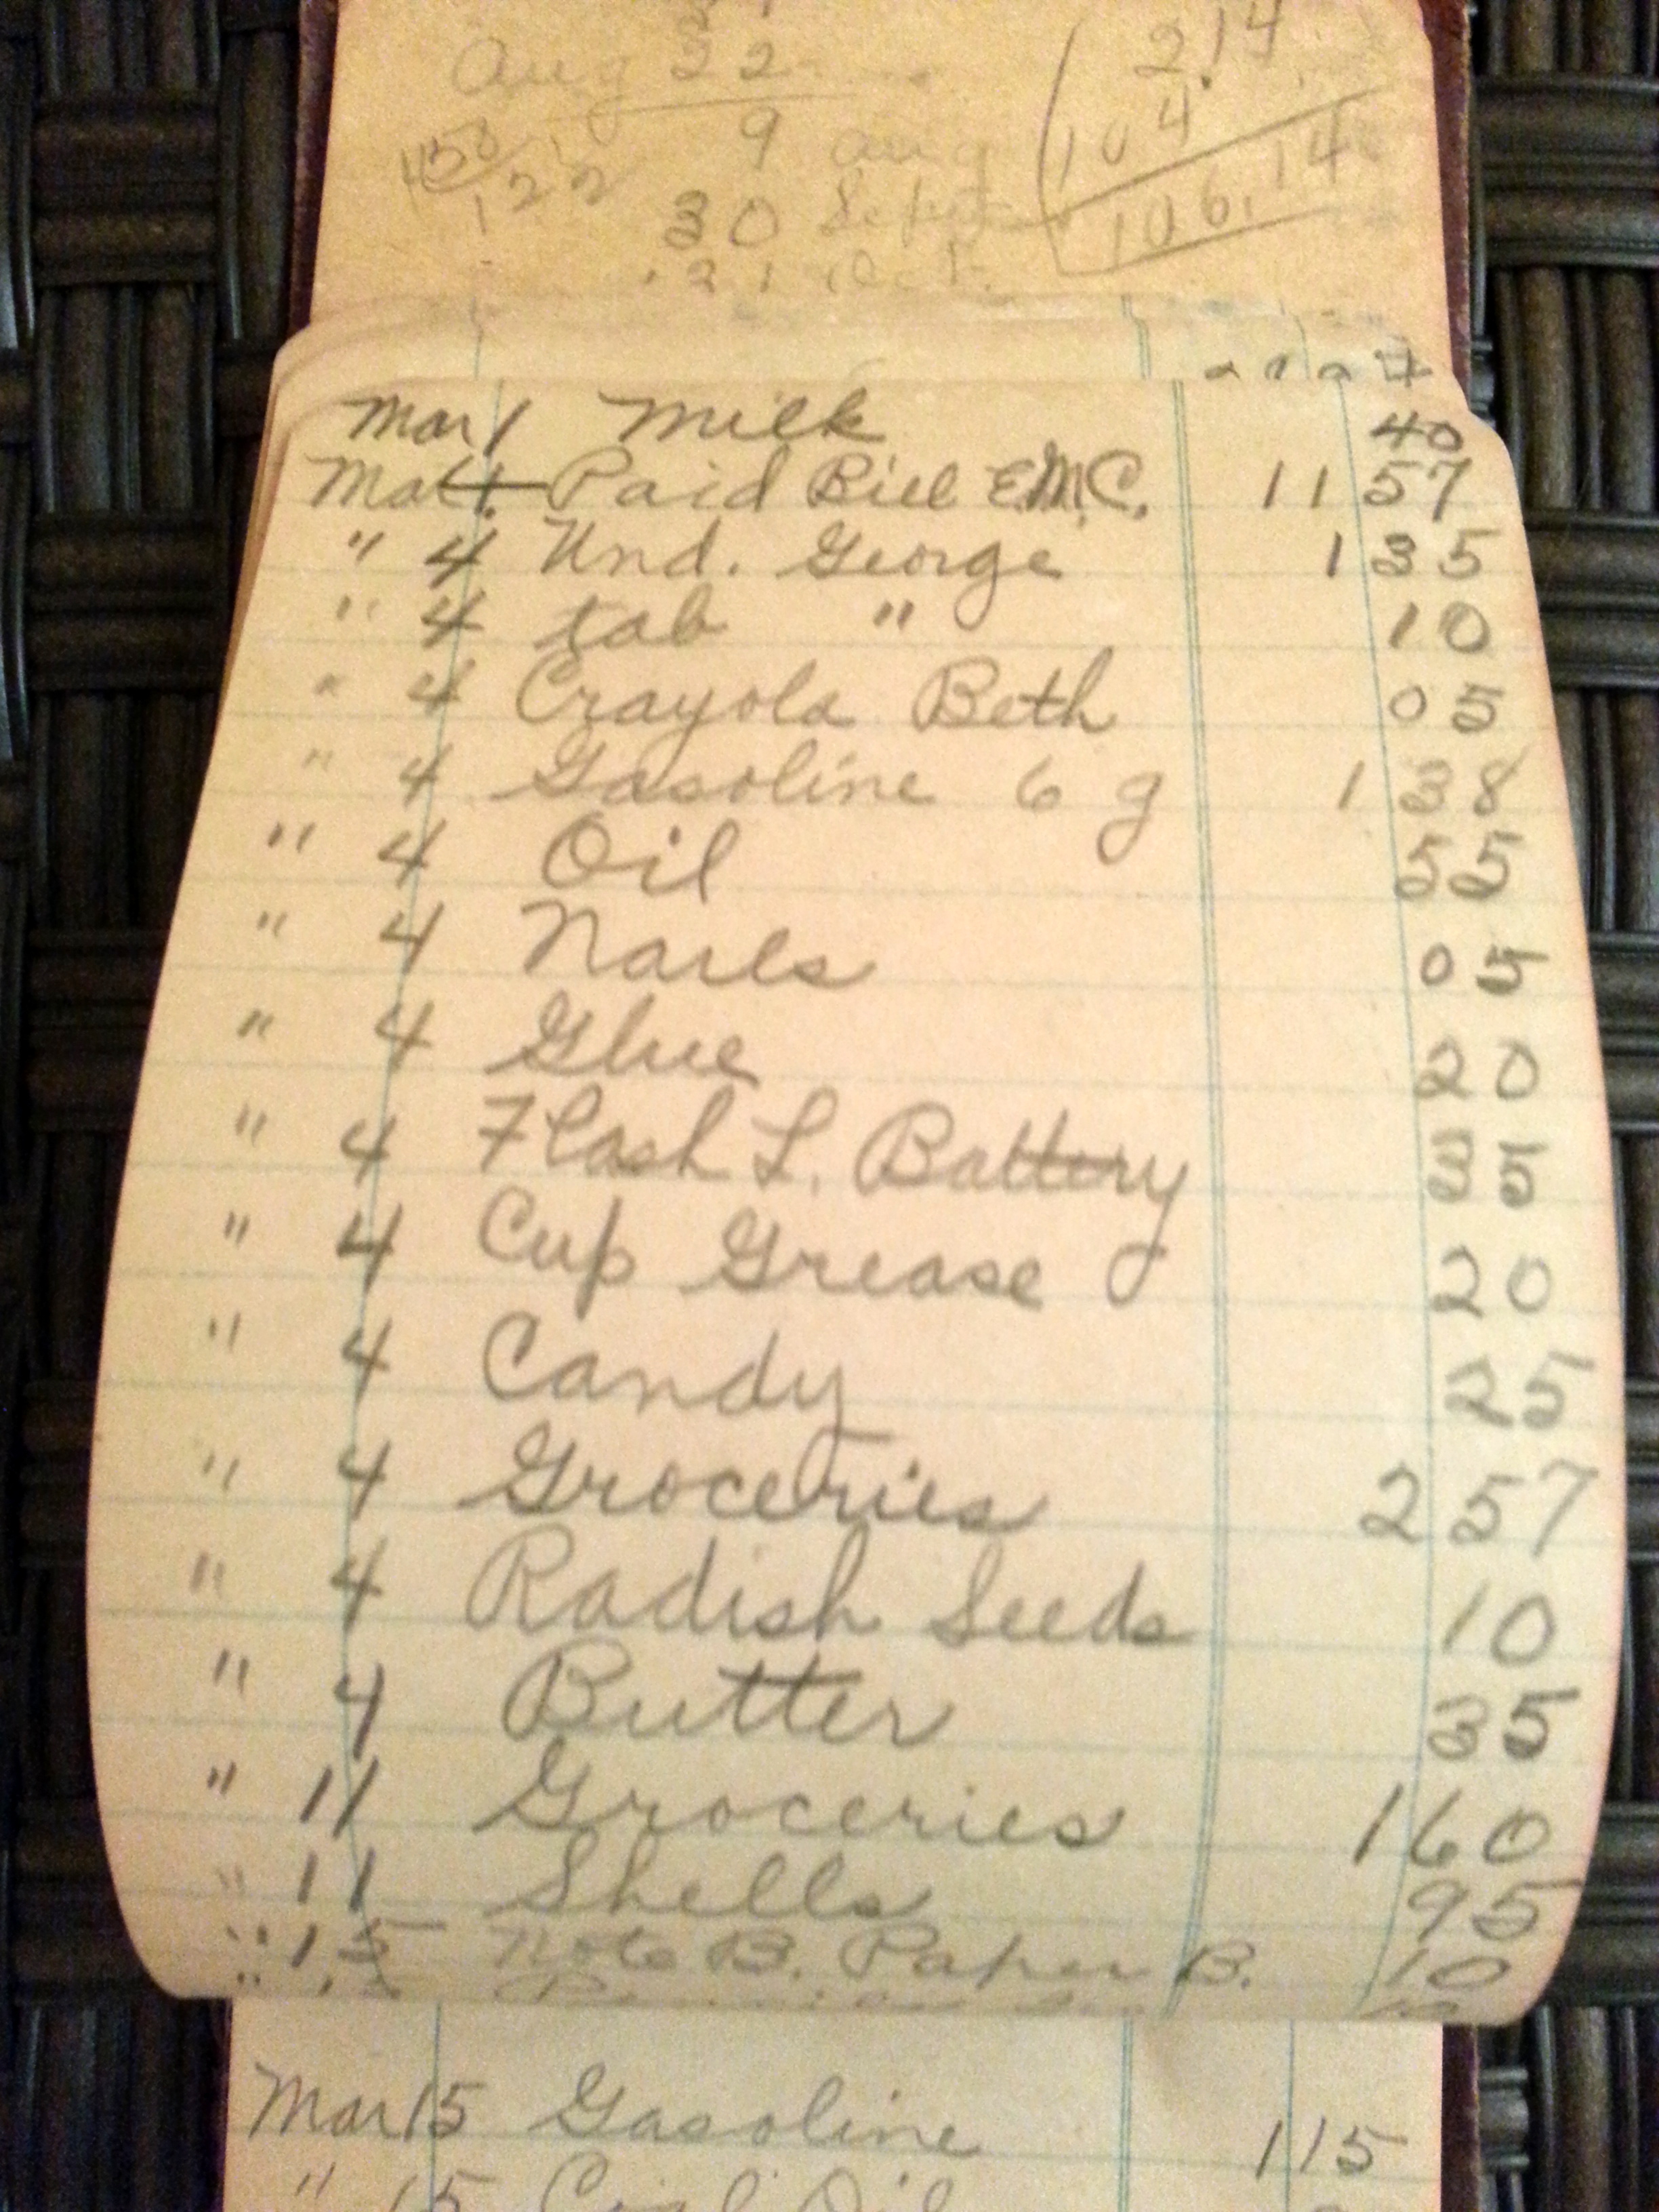 Aug 22
2.14
9 Aug
104
30 Sept
106.14
21 Oct.
Mar 1 Milk 40
Mar 4 Paid Bill E.M.C. 11 57
" 4 Und. George 1 35
" 4 tab " 10
" 4 Crayola Beth 05
" 4 Gasoline 6 g 1 38
" 4 Oil 55
" 4 Nails 05
" 4 Glue 20
" 4 Flash L. Battery 35
" 4 Cup Grease 20
" 4 Candy 25
" 4 Groceries 2 57
" 4 Radish Seeds 10
" 4 Butter 35
" 11 Groceries 1 60
" 11 Shells 95
" 15 Note B. Paper B. 10
Mar 15 Gasoline 1 15
" 15 Coal Oil